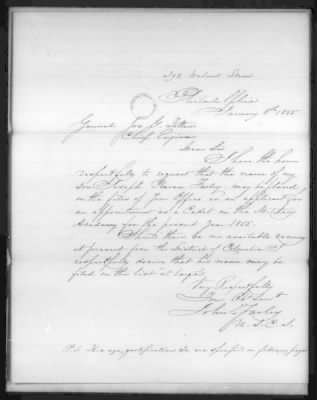 Walnut Street
Philadelphia
January 8th 1855
General Jos. G. Totten
Chief Engineer
Dear Sir
I have the honor
respectfully to request that the name of my
son Joseph Pearson Farley, may be placed
on the files of your Office as an applicant for
an appointment as a Cadet in the Military
Academy for the present year 1855.
Should there be no available vacancy
at present from the District of Columbia I
respectfully desire that his name may be
filed on the list at large.
Very Respectfully
Yr. Obt. Svt
John Farley
U.S.C.S.
P.S. His age, qualifications &c are specified on following page